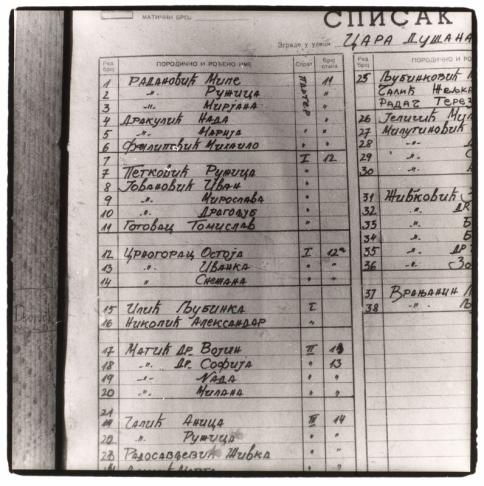 МАТИЧНИ БРОЈ
СПИСАК
Зграде у улици ЦАРА ДУШАНА
Ред. број ПОРОДИЧНО И РОЂЕНО ИМЕ Спрат Број стана
1 РАДАНОВИЋ МИЛЕ ПАРТЕР 11
2 -"- РУЖИЦА "
3 -"- МИРЈАНА "
4 ДРАКУЛИЋ НАДА "
5 -"- МАРИЈА "
6 ФИЛИПОВИЋ МИХАИЛО "
7 I 12
7 ПЕТКОВИЋ РУЖИЦА " "
8 ЈОВАНОВИЋ ИВАН " "
9 -"- МИРОСЛАВА " "
10 -"- ДРАГОЉУБ " "
11 ГОТОВАЦ ТОМИСЛАВ "
12 ЦРНОГОРАЦ ОСТОЈА I 12а
13 -"- ИВАНКА " "
14 -"- СНЕЖАНА " "
15 ИЛИЋ ЉУБИНКА I
16 НИКОЛИЋ АЛЕКСАНДАР "
17 МАТИЋ ДР ВОЈИН II 13
18 -"- ДР СОФИЈА " 13
19 -"- НАДА " "
20 -"- МИЛАНА " "
21
19 ГАЛИЋ АНИЦА III 14
20 -"- РУЖИЦА " "
23 РАДОСАВЉЕВИЋ ЖИВКА " "
Ред. број ПОРОДИЧНО И РО
25 ЉУБИНКОВИЋ
ГАЛИЋ
РАДАЧ ТЕРЕЗ
26 ЈЕЛИЧИЋ
27 МИЛУТИНОВИЋ
28 -"-
29 -"-
30 -"-
31 ЖИВКОВИЋ
32 -"- ДР
33 -"- Б
34 -"- Б
35 -"- ДР
36 -"- ЗО
37 ВРАЊАНИН
38 -"- Љ